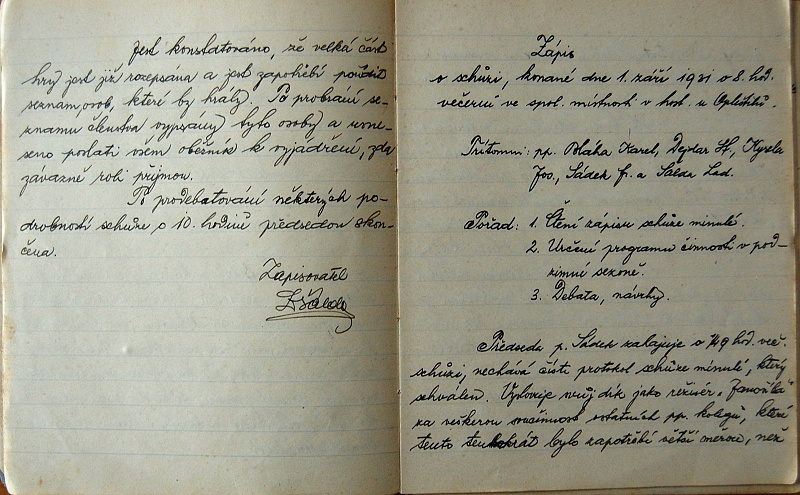 jest konstatováno, že velká část
hry jest již rozepsána a jest zapotřebí pořídit
seznam osob, které by hrály. Po probrání se-
znamu členstva vypsány byly osoby a usne-
seno poslati všem oběžník k vyjádření, zda
závazně roli přijmou.
Po prodebatování některých po-
drobností schůze o 10. hodině předsedou skon-
čena.
Zapisovatel
LŠalda
Zápis
o schůzi, konané dne 1. září 1931 o 8. hod.
večerní ve spol. místnosti v host. u
Přítomni: pp. Bláha Karel, Dejdar St., Kysela
Jos., Sádek Fr. a Šalda Lad.
Pořad: 1. Čtení zápisu schůze minulé.
2. Určení programu činnosti v pod-
zimní sezoně.
3. Debata, návrhy.
Předseda p. Sádek zahajuje o ¾9 hod. več.
schůzi, nechává čísti protokol schůze minulé, který
schválen. Vyslovuje svůj dík jako režisér
za veškerou součinnost ostatních pp. kolegů, které
tento tentokrát bylo zapotřebí větší měrou, než